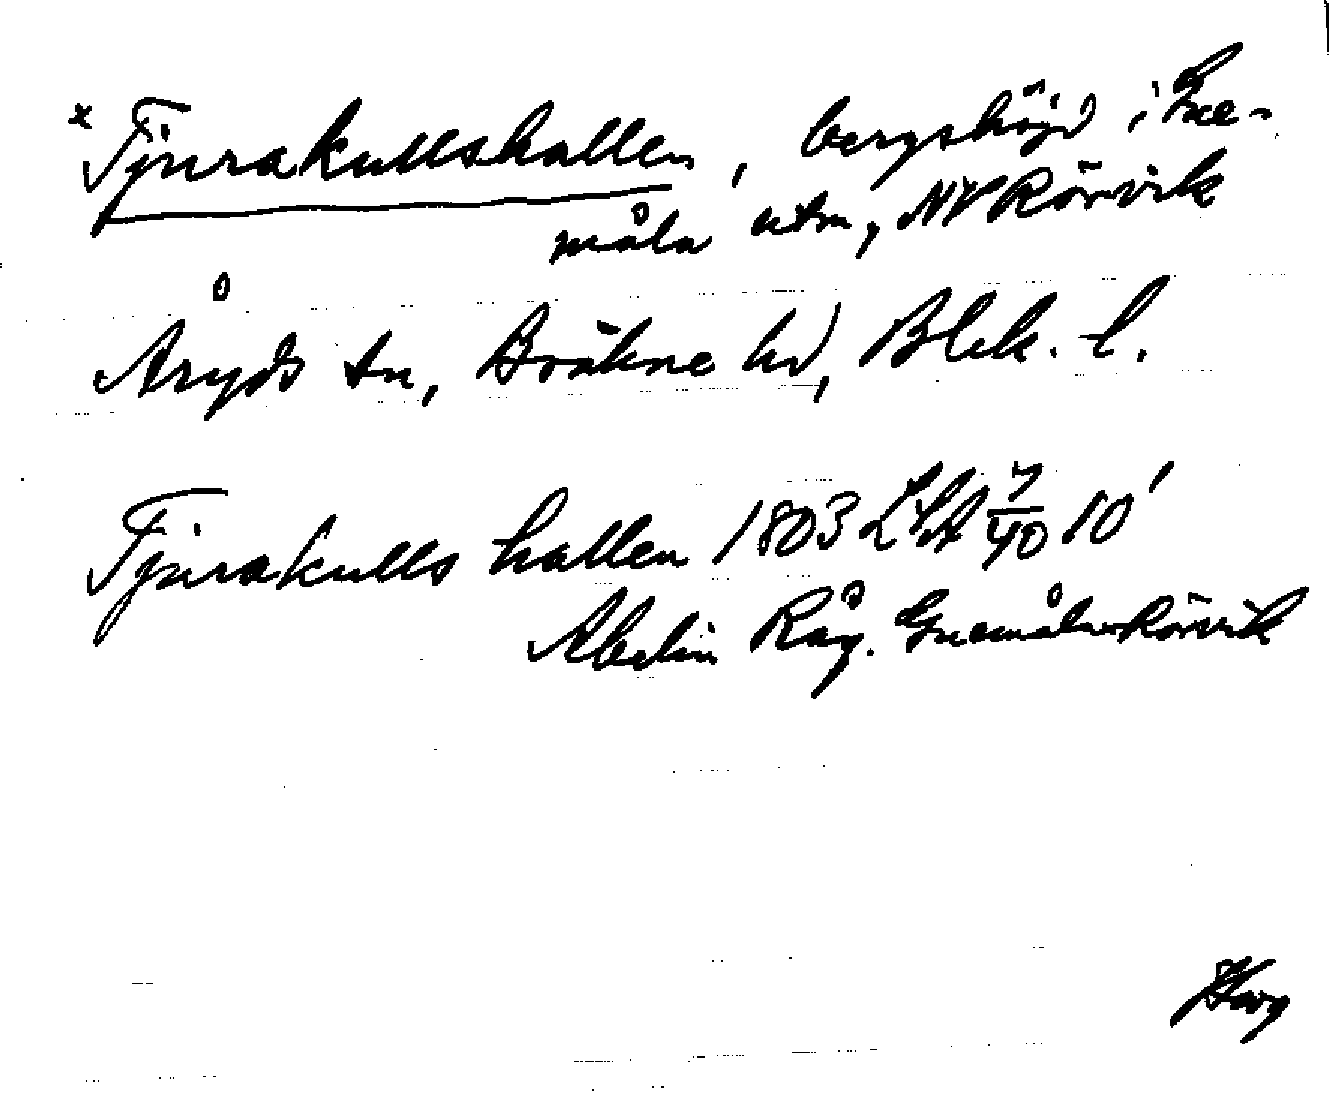 x Tjurakullshallen, bergshöjd i Gue-
måla utm, NV Rörvik
Åryds sn, Bräkne hd, Blek. l.
Tjurakulls hallen 1803 LSA 7/40 10'
Abelin Råg. Guemåla-Rörvik